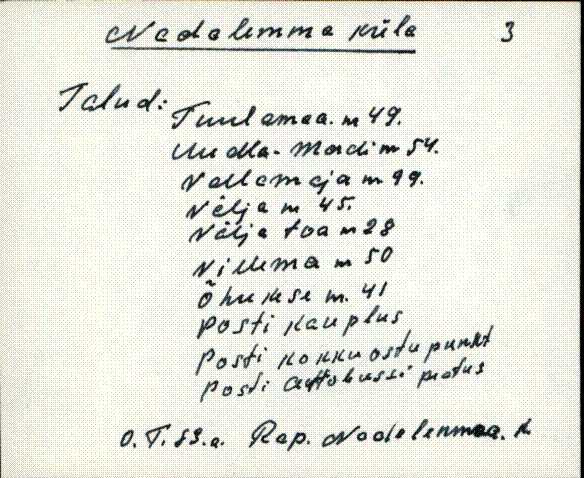 Nadalemma küla 3
Talud:
Tuulamaa. m 49.
Uudla-Mardi m 54.
Vallemaja m 99.
Välja m 45.
Välja toa m 28
Villema m 50
Õhukese m. 41
Posti kauplus
Posti kokkuostu punkt
Posti autobussi peatus
O. T. 89.a. Rap. Nadalemmaa. k